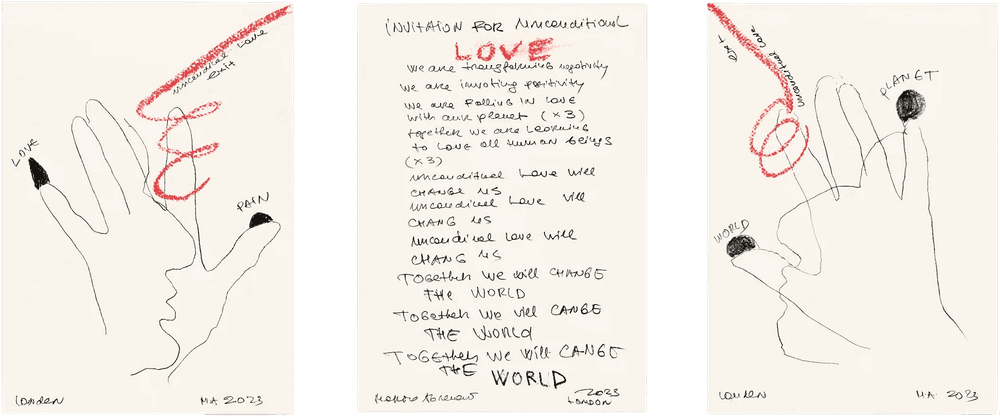 LOVE
unconditional Love
Exit
PAIN
LONDON
MA 2023
INVITAION FOR Unconditional
LOVE
We are transforming negativity
we are invoting positivity
we are Falling IN Love
with our planet (x3)
together we are Learning
to Love all human beings
(x3)
unconditional Love will
CHANGE US
unconditional Love will
CHANG US
unconditional Love will
CHANG US
TOGETHER We will CHANGE
THE WORLD
TOGETHER We will CANGE
THE WORLD
TOGETHER We will CANGE
THE WORLD
2023
LONDON
Exit
unconditional Love
PLANET
WORLD
LONDON
MA 2023